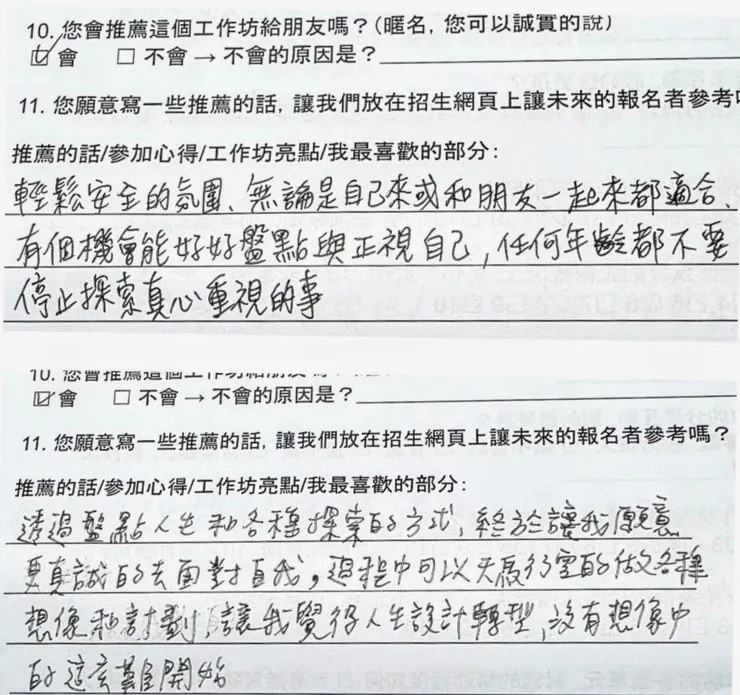 10. 您會推薦這個工作坊給朋友嗎？(匿名, 您可以誠實的說)
☑ 會 ☐ 不會 → 不會的原因是？
11. 您願意寫一些推薦的話, 讓我們放在招生網頁上讓未來的報名者參考
推薦的話/參加心得/工作坊亮點/我最喜歡的部分：
輕鬆安全的氛圍、無論是自己來或和朋友一起來都適合、
有個機會能好好盤點與正視自己, 任何年齡都不要
停止探索真心重視的事
10. 您會推薦這個工作坊給朋友
☑ 會 ☐ 不會 → 不會的原因是？
11. 您願意寫一些推薦的話, 讓我們放在招生網頁上讓未來的報名者參考嗎？
推薦的話/參加心得/工作坊亮點/我最喜歡的部分：
透過盤點人生和各種探索的方式, 終於讓我願意
更真誠的去面對自我, 過程中可以天馬行空的做各種
想像和計劃, 讓我覺得人生設計轉型, 沒有想像中
的這麼難開始